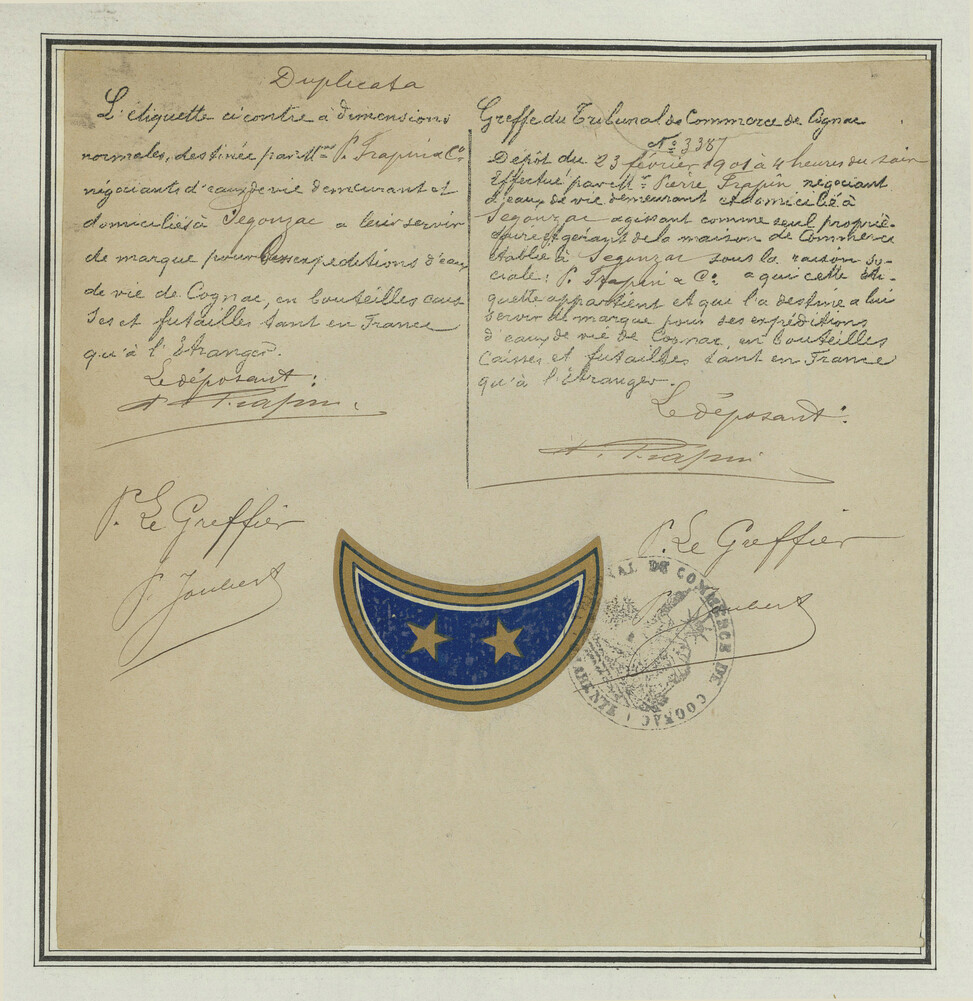 Duplicata
L'étiquette ci contre à dimensions
normales, destinée par Mrs P. Frapin & Co
négociants d'eaux de vie demeurant et
domiciliés à Segonzac a leur servir
de marque pour les expéditions d'eaux
de vie de Cognac, en bouteilles cais
ses et futailles tant en France
qu'à l'Etranger.
Le déposant :
P. Frapin.
P. Le Greffier
P. Joubert
Greffe du Tribunal de Commerce de Cognac
No 3387
Dépôt du 23 février 1901 à 4 heures du soir
Effectué par Mr Pierre Frapin négociant
d'eaux de vie demeurant et domicilié à
Segonzac agissant comme seul proprié-
taire et gérant de la maison de Commerce
établie à Segonzac sous la raison so-
ciale : P. Frapin & Co a qui cette éti-
quette appartient et que l'a destine a lui
servir de marque pour ses expéditions
d'eaux de vie de Cognac en bouteilles
Caisses et futailles tant en France
qu'à l'Etranger.
Le déposant :
P. Frapin
P. Le Greffier
P. Joubert
TRIBUNAL DE COMMERCE DE COGNAC
CHARENTE